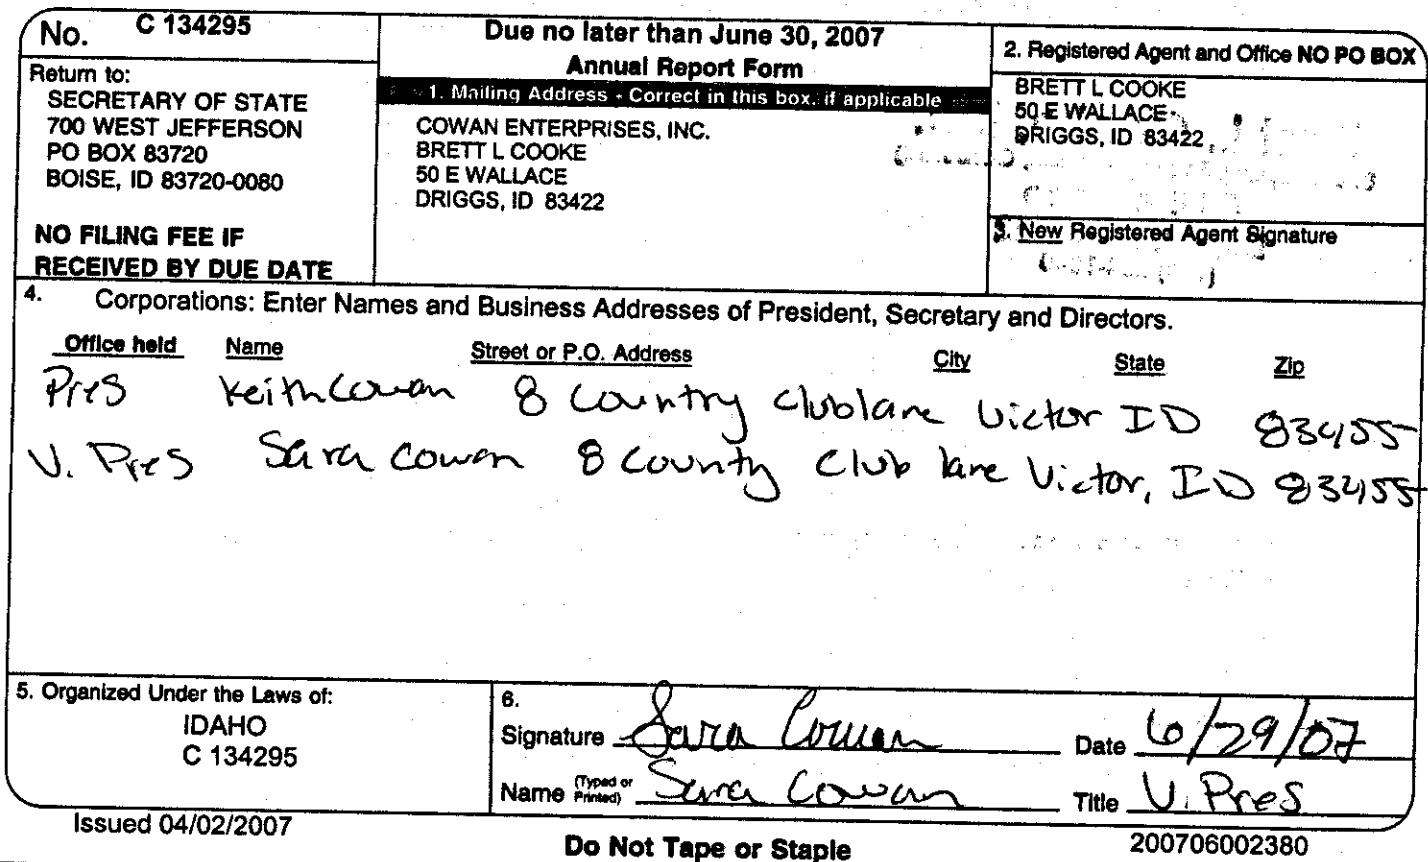 No. C 134295
Return to:
SECRETARY OF STATE
700 WEST JEFFERSON
PO BOX 83720
BOISE, ID 83720-0080
NO FILING FEE IF
RECEIVED BY DUE DATE
Due no later than June 30, 2007
Annual Report Form
1. Mailing Address - Correct in this box. if applicable
COWAN ENTERPRISES, INC.
BRETT L COOKE
50 E WALLACE
DRIGGS, ID 83422
2. Registered Agent and Office NO PO BOX
BRETT L COOKE
50 E WALLACE
DRIGGS, ID 83422
3. New Registered Agent Signature
4. Corporations: Enter Names and Business Addresses of President, Secretary and Directors.
Office held Name Street or P.O. Address City State Zip
Pres Keith Cowan 8 Country Club lane Victor ID 83455
V. Pres Sara Cowan 8 County Club lane Victor, ID 83455
5. Organized Under the Laws of:
IDAHO
C 134295
6.
Signature Sara Cowan Date 6/29/07
Name (Typed or Printed) Sara Cowan Title V. Pres
Issued 04/02/2007
Do Not Tape or Staple
200706002380